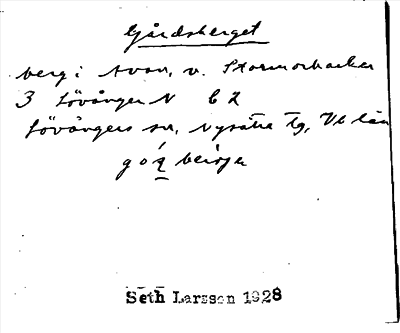 Gårdsberget
berg i Avan, v. Stormorbacken
3 Lövånger N b 2
Lövångers sn, Nysätra tg, Vb län
Seth Larsson 1928